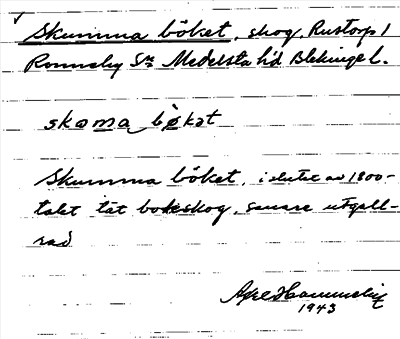 Skumma böket, skog, Rustorp 1
Ronneby Sn Medelsta hd Blekinge l.
skoma bökət
Skumma böket, i slutet av 1800-
talet tät bokskog, senare utgall-
rad
Axel
1943